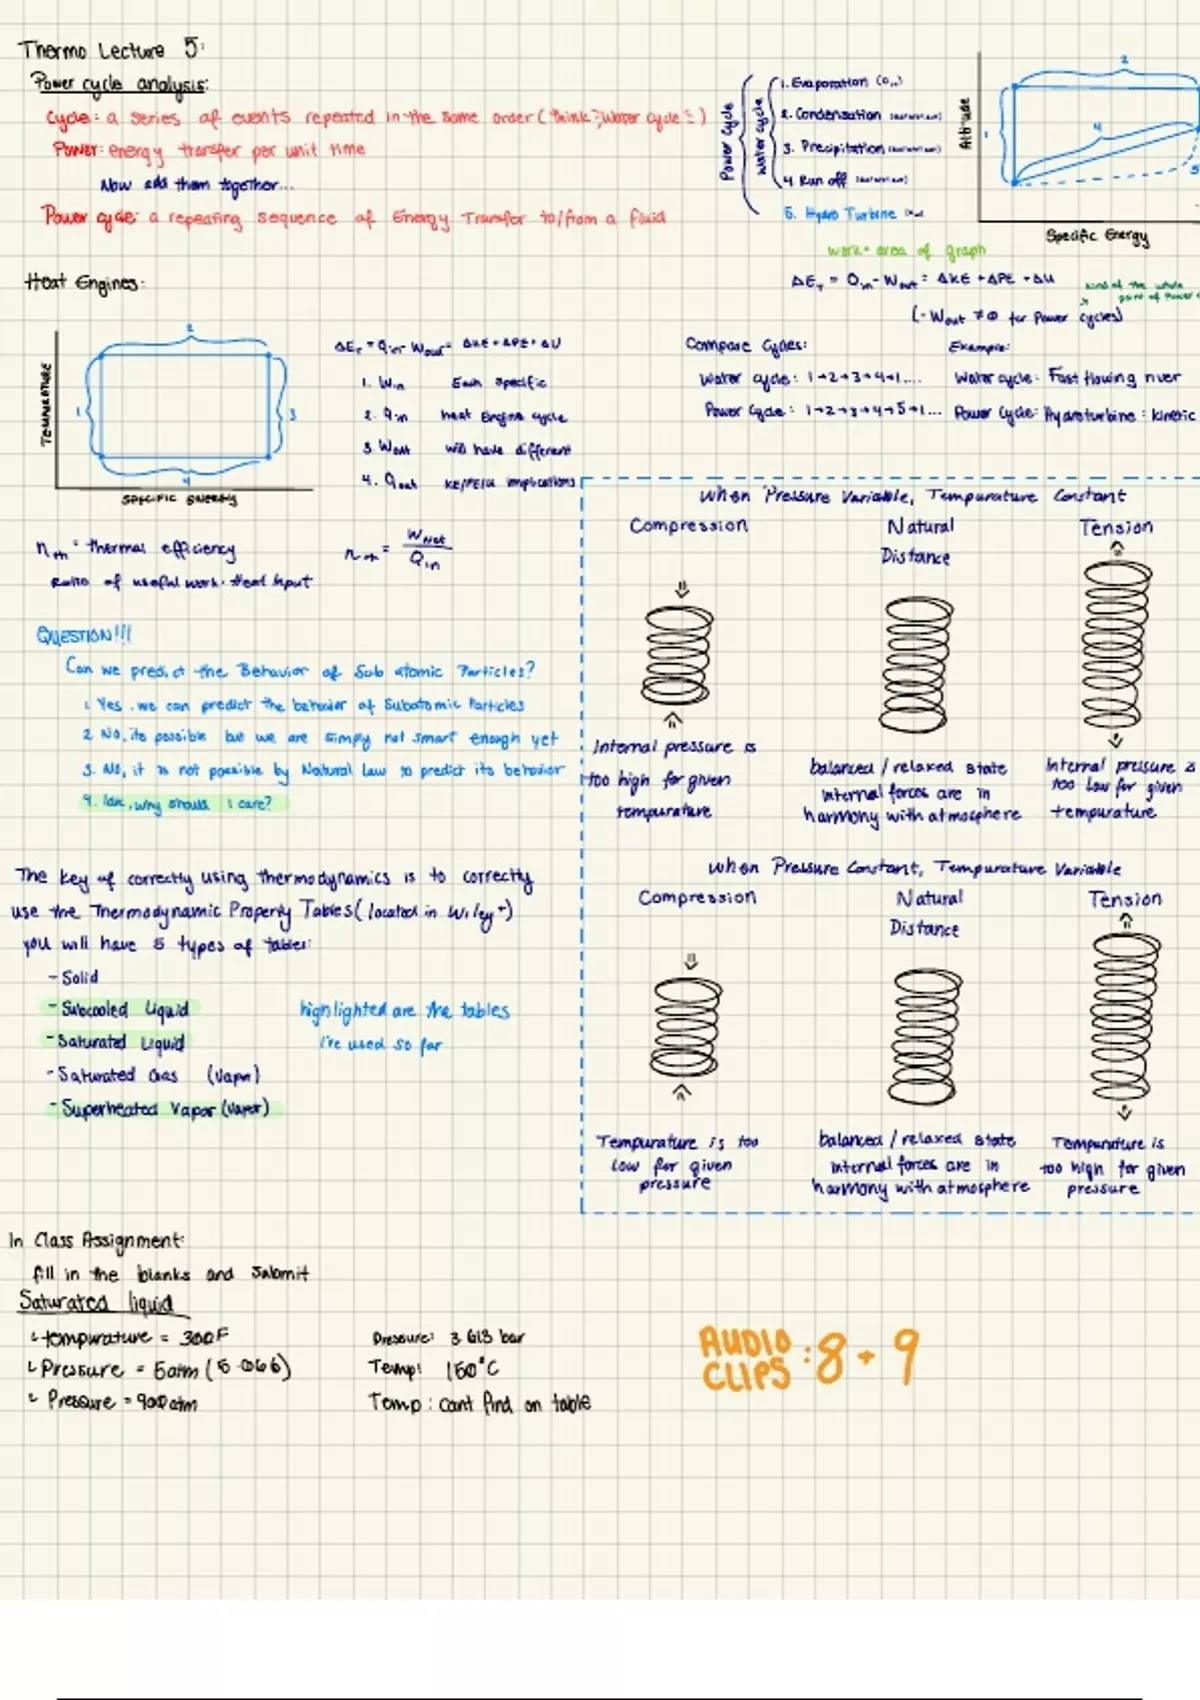 Thermo Lecture 5:
Power cycle analysis:
Cycle: a series of events repeated in the same order (think: Water cycle :)
Power: energy transfer per unit time
Now add them together...
Power cycle: a repeating sequence of Energy Transfer to/from a fluid
Power cycle
Water cycle
1. Evaporation
2. Condensation
3. Precipitation
4 Run off
5. Hydro Turbine
work = area of graph
Altitude
1
2
4
5
Specific Energy
ΔE = Qin - Wout = ΔKE + ΔPE + ΔU
kind of the whole point of power
(-Wout ≠ 0 for Power cycles)
Compare Cycles:
Example:
Water cycle: 1→2→3→4→1....
Water cycle: Fast flowing river
Power Cycle: 1→2→3→4→5→1...
Power Cycle: Hydroturbine: kinetic
Heat Engines:
TEMPURATURE
1
2
3
4
SPECIFIC ENERGY
ΔE = Qin - Wout = ΔKE + ΔPE + ΔU
1. Win
2. Qin
3 Wout
4. Qout
Each specific
heat Engine cycle
will have different
KE/PE/U implications
nth = thermal efficiency
Ratio of useful work: Heat Input
nth = WNet / Qin
QUESTION!!!
Can we predict the Behavior of Sub atomic Particles?
1 Yes, we can predict the behavior of Subatomic Particles
2 No, its possible but we are simply not smart enough yet
3. No, it is not possible by Natural Law to predict its behavior
4. Idk, why should I care?
The key of correctly using thermodynamics is to correctly
use the Thermodynamic Property Tables (located in Wiley+)
you will have 5 types of tables:
- Solid
- Subcooled Liquid
- Saturated Liquid
- Saturated Gas (Vapor)
- Superheated Vapor (Vapor)
highlighted are the tables
I've used so far
When Pressure Variable, Tempurature Constant
Compression
Natural
Distance
Tension
Internal pressure is
too high for given
tempurature
balanced / relaxed state
internal forces are in
harmony with atmosphere
Internal pressure is
too low for given
tempurature
When Pressure Constant, Tempurature Variable
Compression
Natural
Distance
Tension
Tempurature is too
low for given
pressure
balanced / relaxed state
internal forces are in
harmony with atmosphere
Tempurature is
too high for given
pressure
In Class Assignment:
fill in the blanks and Submit
Saturated liquid
↳ tempurature = 300F
Pressure: 3.613 bar
↳ Pressure = 5atm (5.066)
Temp: 150°C
↳ Pressure = 900atm
Temp: Cant find on table
AUDIO
CLIPS: 8 → 9